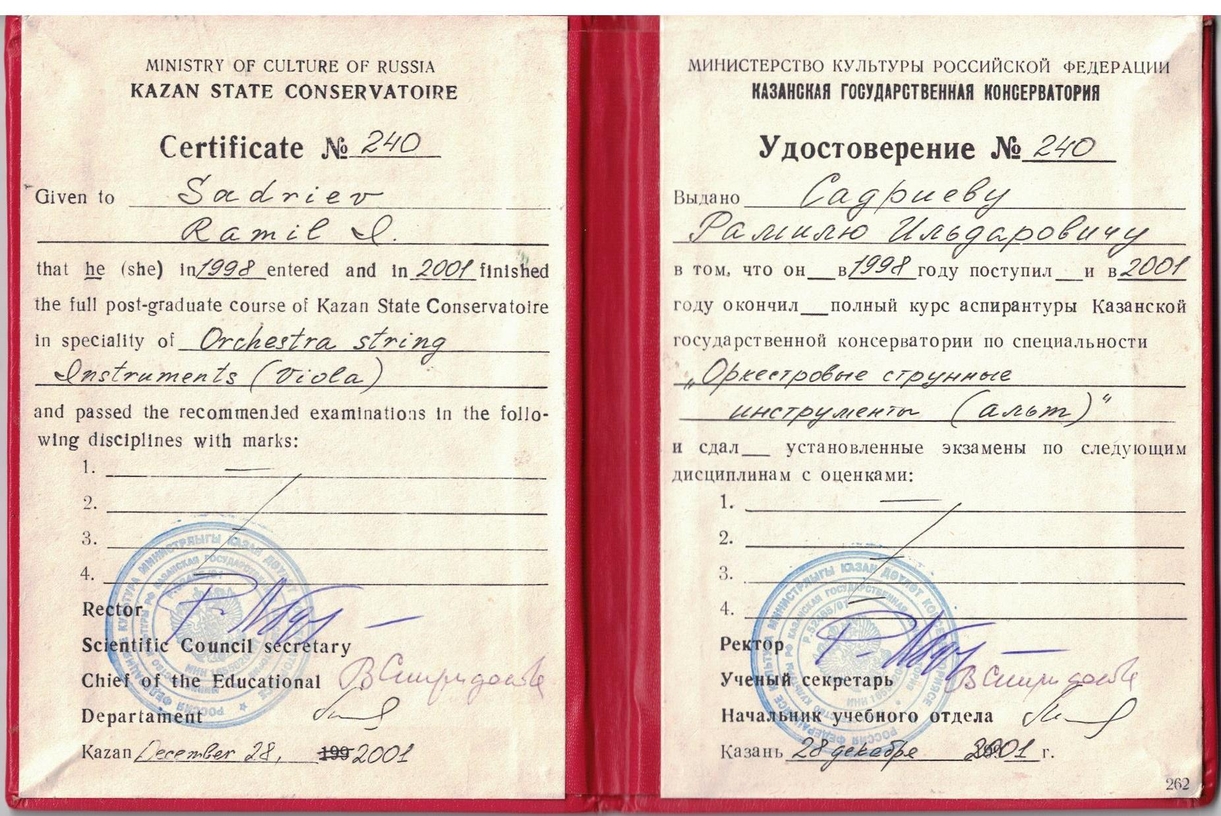 MINISTRY OF CULTURE OF RUSSIA
KAZAN STATE CONSERVATOIRE
Certificate № 240
Given to Sadriev
Ramil I.
that he (she) in 1998 entered and in 2001 finished
the full post-graduate course of Kazan State Conservatoire
in speciality of Orchestra string
Instruments (Viola)
and passed the recommended examinations in the follo-
wing disciplines with marks:
1.
2.
3.
4.
Rector
Scientific Council secretary
Chief of the Educational
Departament
Kazan December 28, 199 2001
МИНИСТЕРСТВО КУЛЬТУРЫ РОССИЙСКОЙ ФЕДЕРАЦИИ
КАЗАНСКАЯ ГОСУДАРСТВЕННАЯ КОНСЕРВАТОРИЯ
Удостоверение № 240
Выдано Садриеву
Рамилю Ильдаровичу
в том, что он__ в 1998 году поступил__ и в 2001
году окончил__ полный курс аспирантуры Казанской
государственной консерватории по специальности
„Оркестровые струнные
инструменты (альт)"
и сдал__ установленные экзамены по следующим
дисциплинам с оценками:
1.
2.
3.
4.
Ректор
Ученый секретарь
Начальник учебного отдела
Казань 28 декабря 2001 г.
262